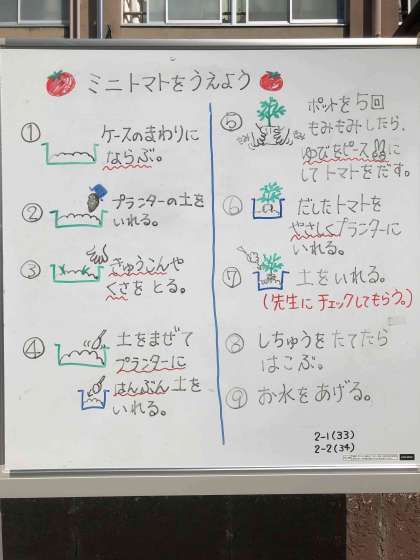 ミニトマトをうえよう
① ケースのまわりに
ならぶ。
② プランターの土を
いれる。
③ きゅうこんや
くさを とる。
④ 土をまぜて
プランターに
はんぶん土を
いれる。
⑤ ポットを5回
もみもみしたら、
ゆびをピースに
してトマトをだす。
⑥ だしたトマトを
やさしくプランターに
いれる。
⑦ 土をいれる。
(先生に チェックしてもらう。)
⑧ しちゅうを たてたら
はこぶ。
⑨ お水をあげる。
2-1(33)
2-2(34)